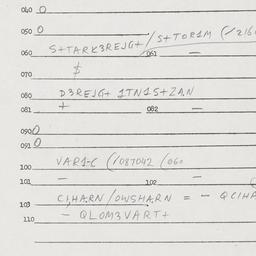 040 0
050 0
060 S+TARK3REJG+/S+TOR1M (/216 061 —
070 $
080 D3REJG+ 1TN1S+ZAN
081 + 082 —
090 0
091 0
100 VAR1-C (/087042 (060
101 — 102 —
103 C1,HA.RN/OWSHA.RN = - QC1HA
110 - QLOM3VART+